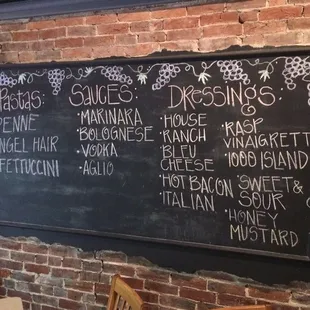 Pastas:
PENNE
ANGEL HAIR
FETTUCCINI
SAUCES:
·MARINARA
·BOLOGNESE
·VODKA
·AGLIO
DRESSINGS:
·HOUSE
·RANCH
·BLEU
CHEESE
·HOT BACON
·ITALIAN
·RASP
VINAIGRETT
·1000 ISLAND
·SWEET &
SOUR
·HONEY
MUSTARD